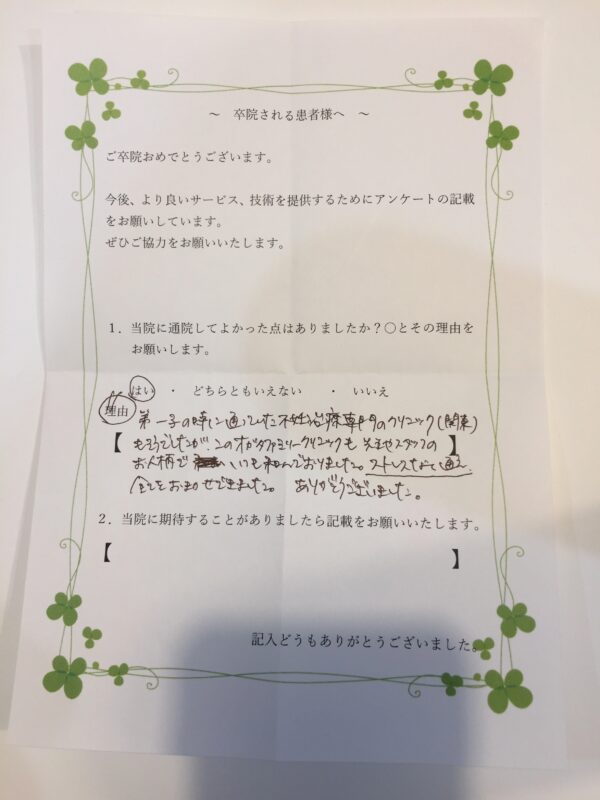 ～ 卒院される患者様へ ～
ご卒院おめでとうございます。
今後、より良いサービス、技術を提供するためにアンケートの記載
をお願いしています。
ぜひご協力をお願いいたします。
1．当院に通院してよかった点はありましたか？○とその理由を
お願いします。
はい ・ どちらともいえない ・ いいえ
理由 第一子の時に通っていた不妊治療専門のクリニック(関東)
【 もそうでしたが、このオガタファミリークリニックも 先生やスタッフの 】
お人柄で いつも和んでおりました。ストレスなく通え、
全てをおまかせできました。 ありがとうございました。
2．当院に期待することがありましたら記載をお願いいたします。
【 】
記入どうもありがとうございました。